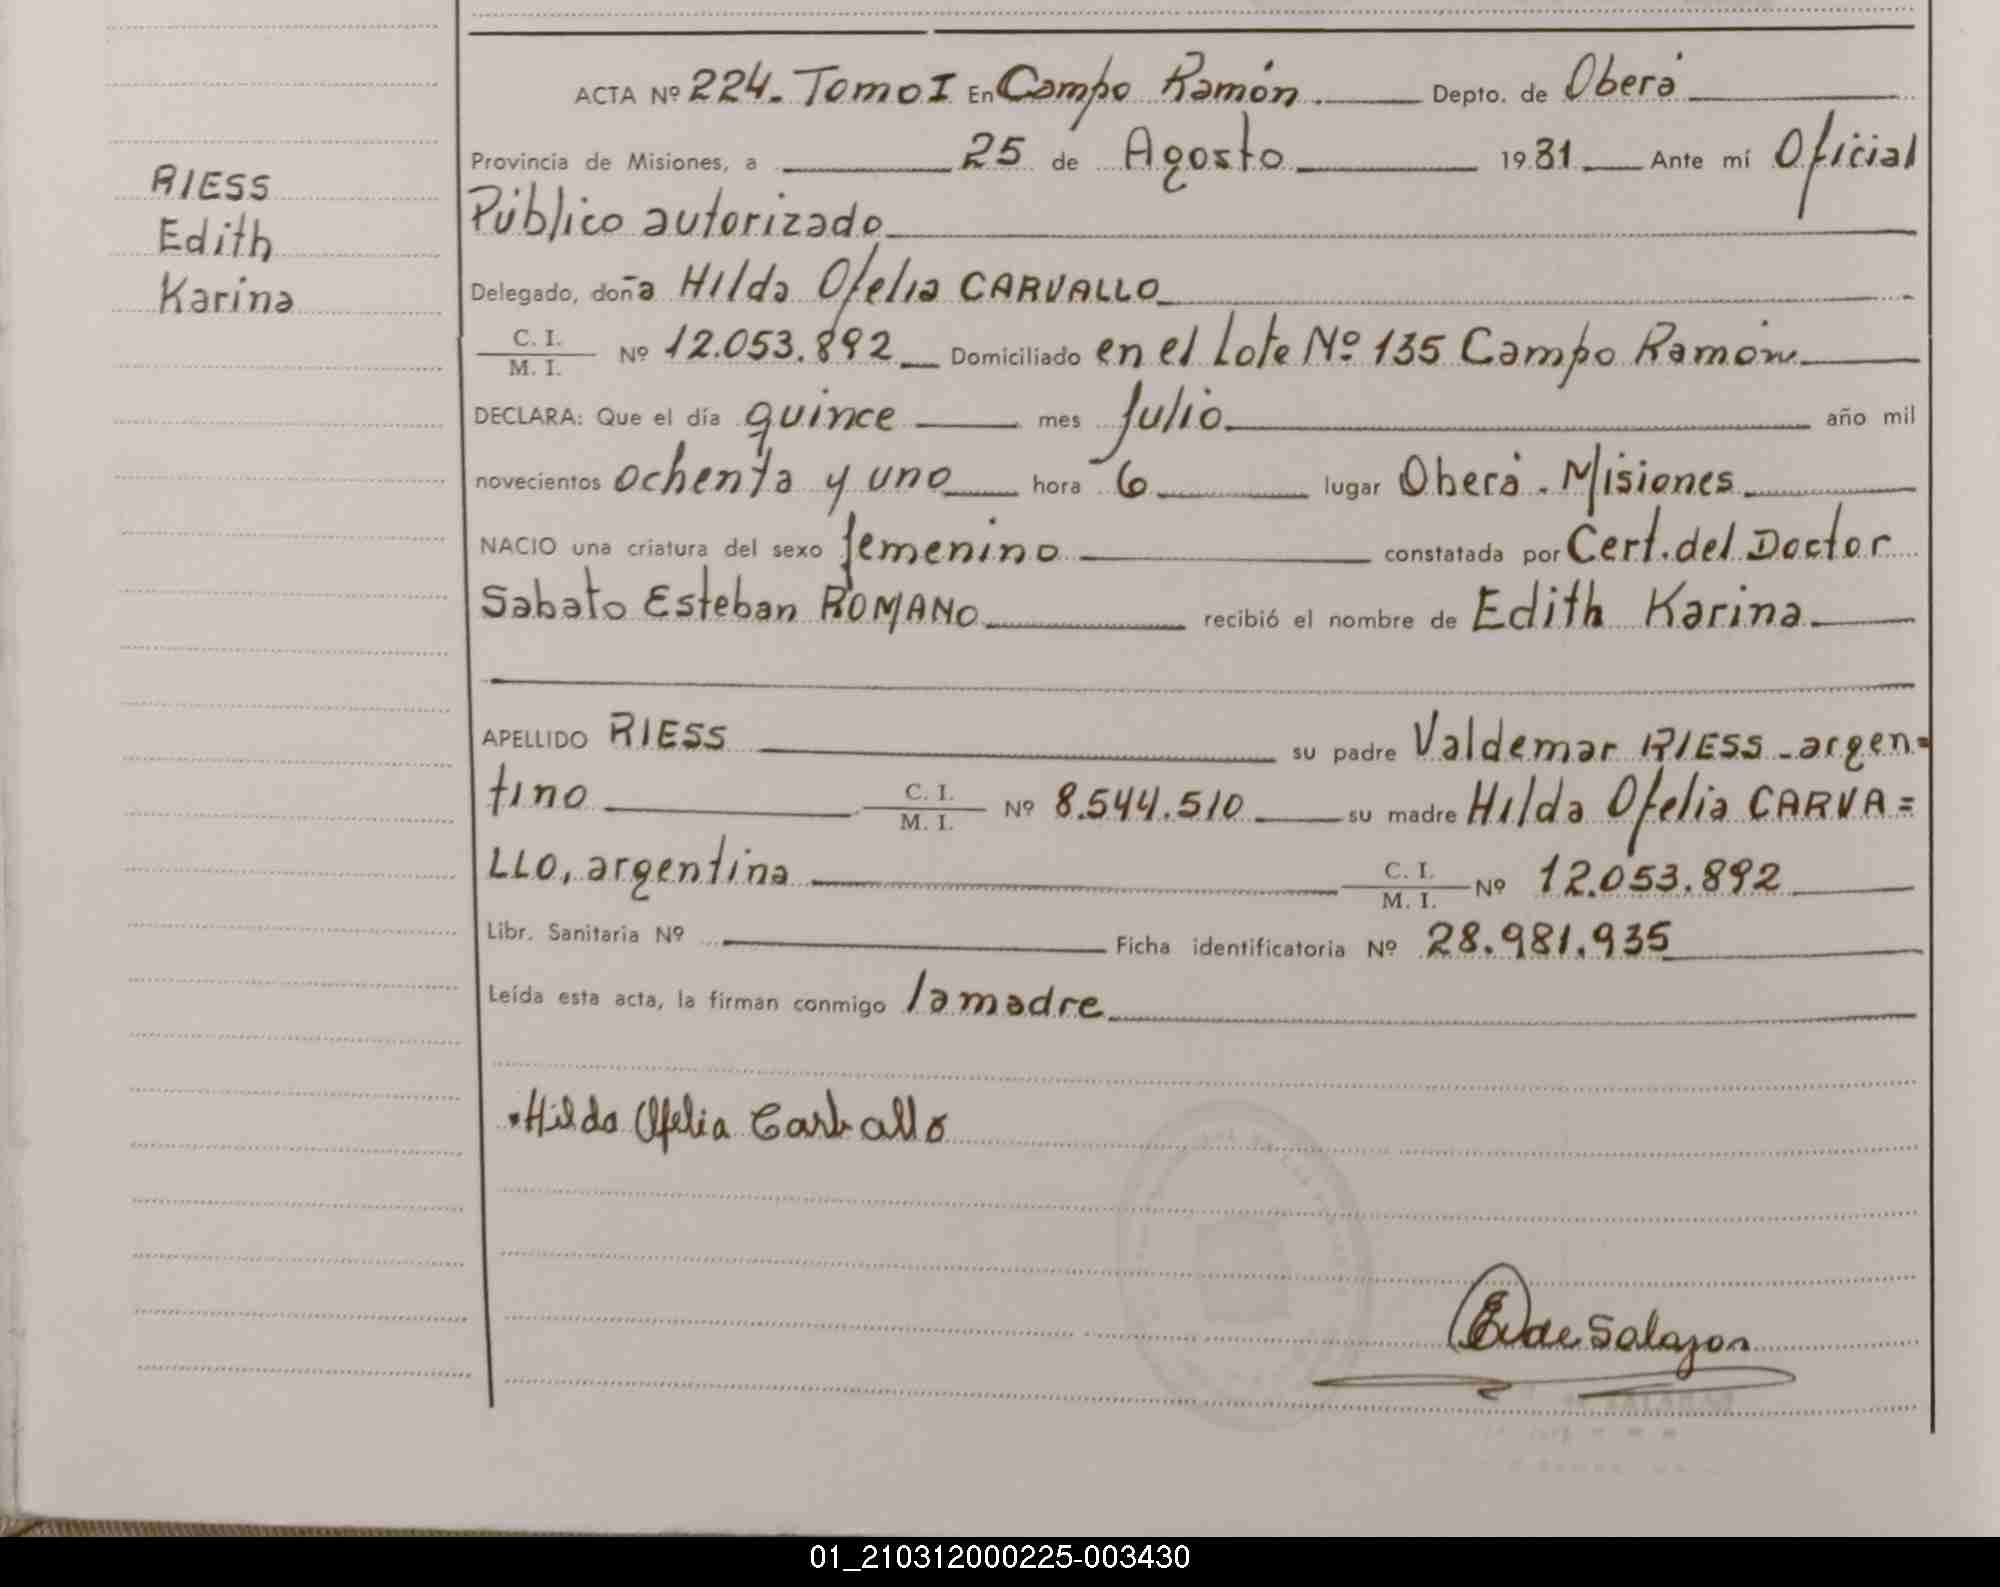 ACTA Nº 224. Tomo I En Campo Ramón. Depto. de Oberá
Provincia de Misiones, a 25 de Agosto 1981 Ante mí Oficial
Público autorizado
RIESS
Edith
Karina
Delegado, doña Hilda Ofelia CARVALLO
C. I.
M. I. Nº 12.053.892 Domiciliado en el Lote Nº 135 Campo Ramón
DECLARA: Que el día quince mes Julio año mil
novecientos ochenta y uno hora 6 lugar Oberá. Misiones
NACIO una criatura del sexo femenino constatada por Cert. del Doctor
Sabato Esteban ROMANO recibió el nombre de Edith Karina
APELLIDO RIESS su padre Valdemar RIESS - argen=
tino C. I. M. I. Nº 8.544.510 su madre Hilda Ofelia CARVA=
LLO, argentina C. I. M. I. Nº 12.053.892
Libr. Sanitaria Nº Ficha identificatoria Nº 28.981.935
Leída esta acta, la firman conmigo la madre
Hilda Ofelia Carballo
de Salazar
01_210312000225-003430